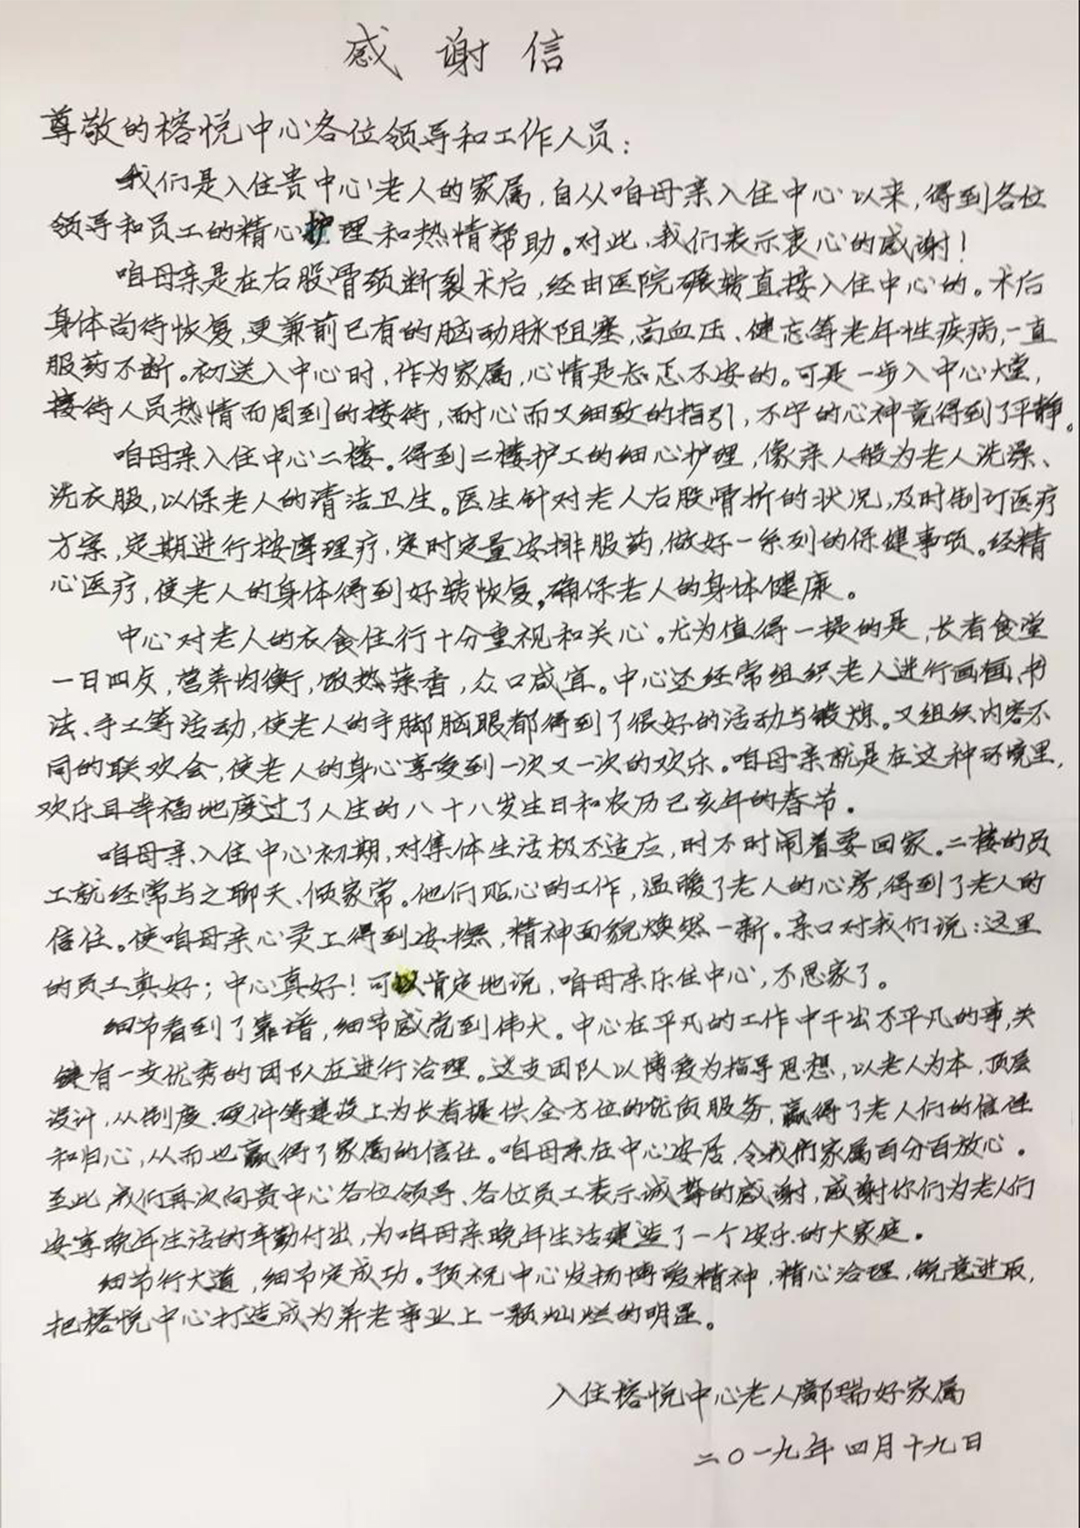 感谢信
尊敬的榕悦中心各位领导和工作人员：
我们是入住贵中心老人的家属，自从咱母亲入住中心以来，得到各位
领导和员工的精心护理和热情帮助。对此，我们表示衷心的感谢！
咱母亲是在右股骨颈断裂术后，经由医院辗转直接入住中心的。术后
身体尚待恢复，更兼前已有的脑动脉阻塞，高血压、健忘等老年性疾病，一直
服药不断。初送入中心时，作为家属，心情是忐忑不安的。可是一步入中心大堂，
接待人员热情而周到的接待，耐心而又细致的指引，不宁的心神竟得到了平静。
咱母亲入住中心二楼。得到二楼护工的细心护理，像亲人般为老人洗澡、
洗衣服，以保老人的清洁卫生。医生针对老人右股骨折的状况，及时制订医疗
方案，定期进行按摩理疗，定时定量安排服药，做好一系列的保健事项。经精
心医疗，使老人的身体得到好转恢复，确保老人的身体健康。
中心对老人的衣食住行十分重视和关心。尤为值得一提的是，长者食堂
一日四炊，营养均衡，饭热菜香，众口咸宜。中心还经常组织老人进行画画、书
法、手工等活动，使老人的手脚脑眼都得到了很好的活动与锻炼。又组织内容不
同的联欢会，使老人的身心享受到一次又一次的欢乐。咱母亲就是在这种环境里，
欢乐且幸福地度过了人生的八十八岁生日和农历己亥年的春节。
咱母亲入住中心初期，对集体生活极不适应，时不时闹着要回家。二楼的员
工就经常与之聊天、倾家常。他们贴心的工作，温暖了老人的心房，得到了老人的
信任。使咱母亲心灵上得到安抚，精神面貌焕然一新。亲口对我们说：这里
的员工真好；中心真好！可以肯定地说，咱母亲乐住中心，不思家了。
细节看到了靠谱，细节感觉到伟大。中心在平凡的工作中干出不平凡的事，关
键有一支优秀的团队在进行治理。这支团队以博爱为指导思想，以老人为本，顶层
设计，从制度、硬件等建设上为长者提供全方位的优质服务，赢得了老人们的信任
和归心，从而也赢得了家属的信任。咱母亲在中心安居，令我们家属百分百放心。
至此，我们再次向贵中心各位领导、各位员工表示诚挚的感谢，感谢你们为老人们
安享晚年生活的辛勤付出，为咱母亲晚年生活建造了一个安乐的大家庭。
细节行大道，细节定成功。预祝中心发扬博爱精神，精心治理，锐意进取，
把榕悦中心打造成为养老事业上一颗灿烂的明星。
入住榕悦中心老人鄺瑞好家属
二〇一九年四月十九日